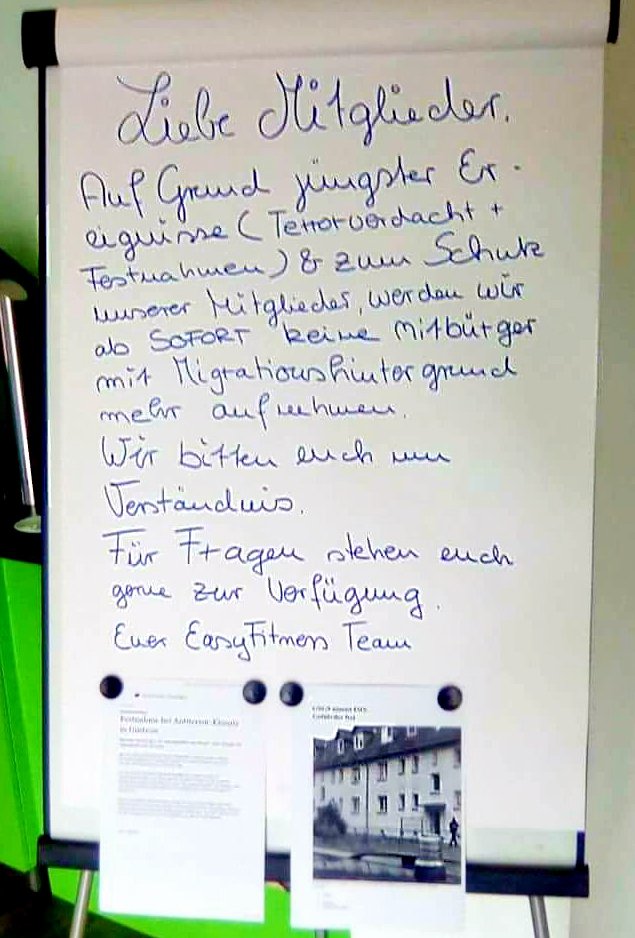 Liebe Mitglieder.
Auf Grund jüngster Er-
eignisse (Terrorverdacht +
Festnahmen) & zum Schutz
unserer Mitglieder, werden wir
ab SOFORT keine Mitbürger
mit Migrationshintergrund
mehr aufnehmen.
Wir bitten euch um
Verständnis.
Für Fragen stehen euch
gerne zur Verfügung.
Euer EasyFitness Team
Festnahme bei Antiterror-Einsatz